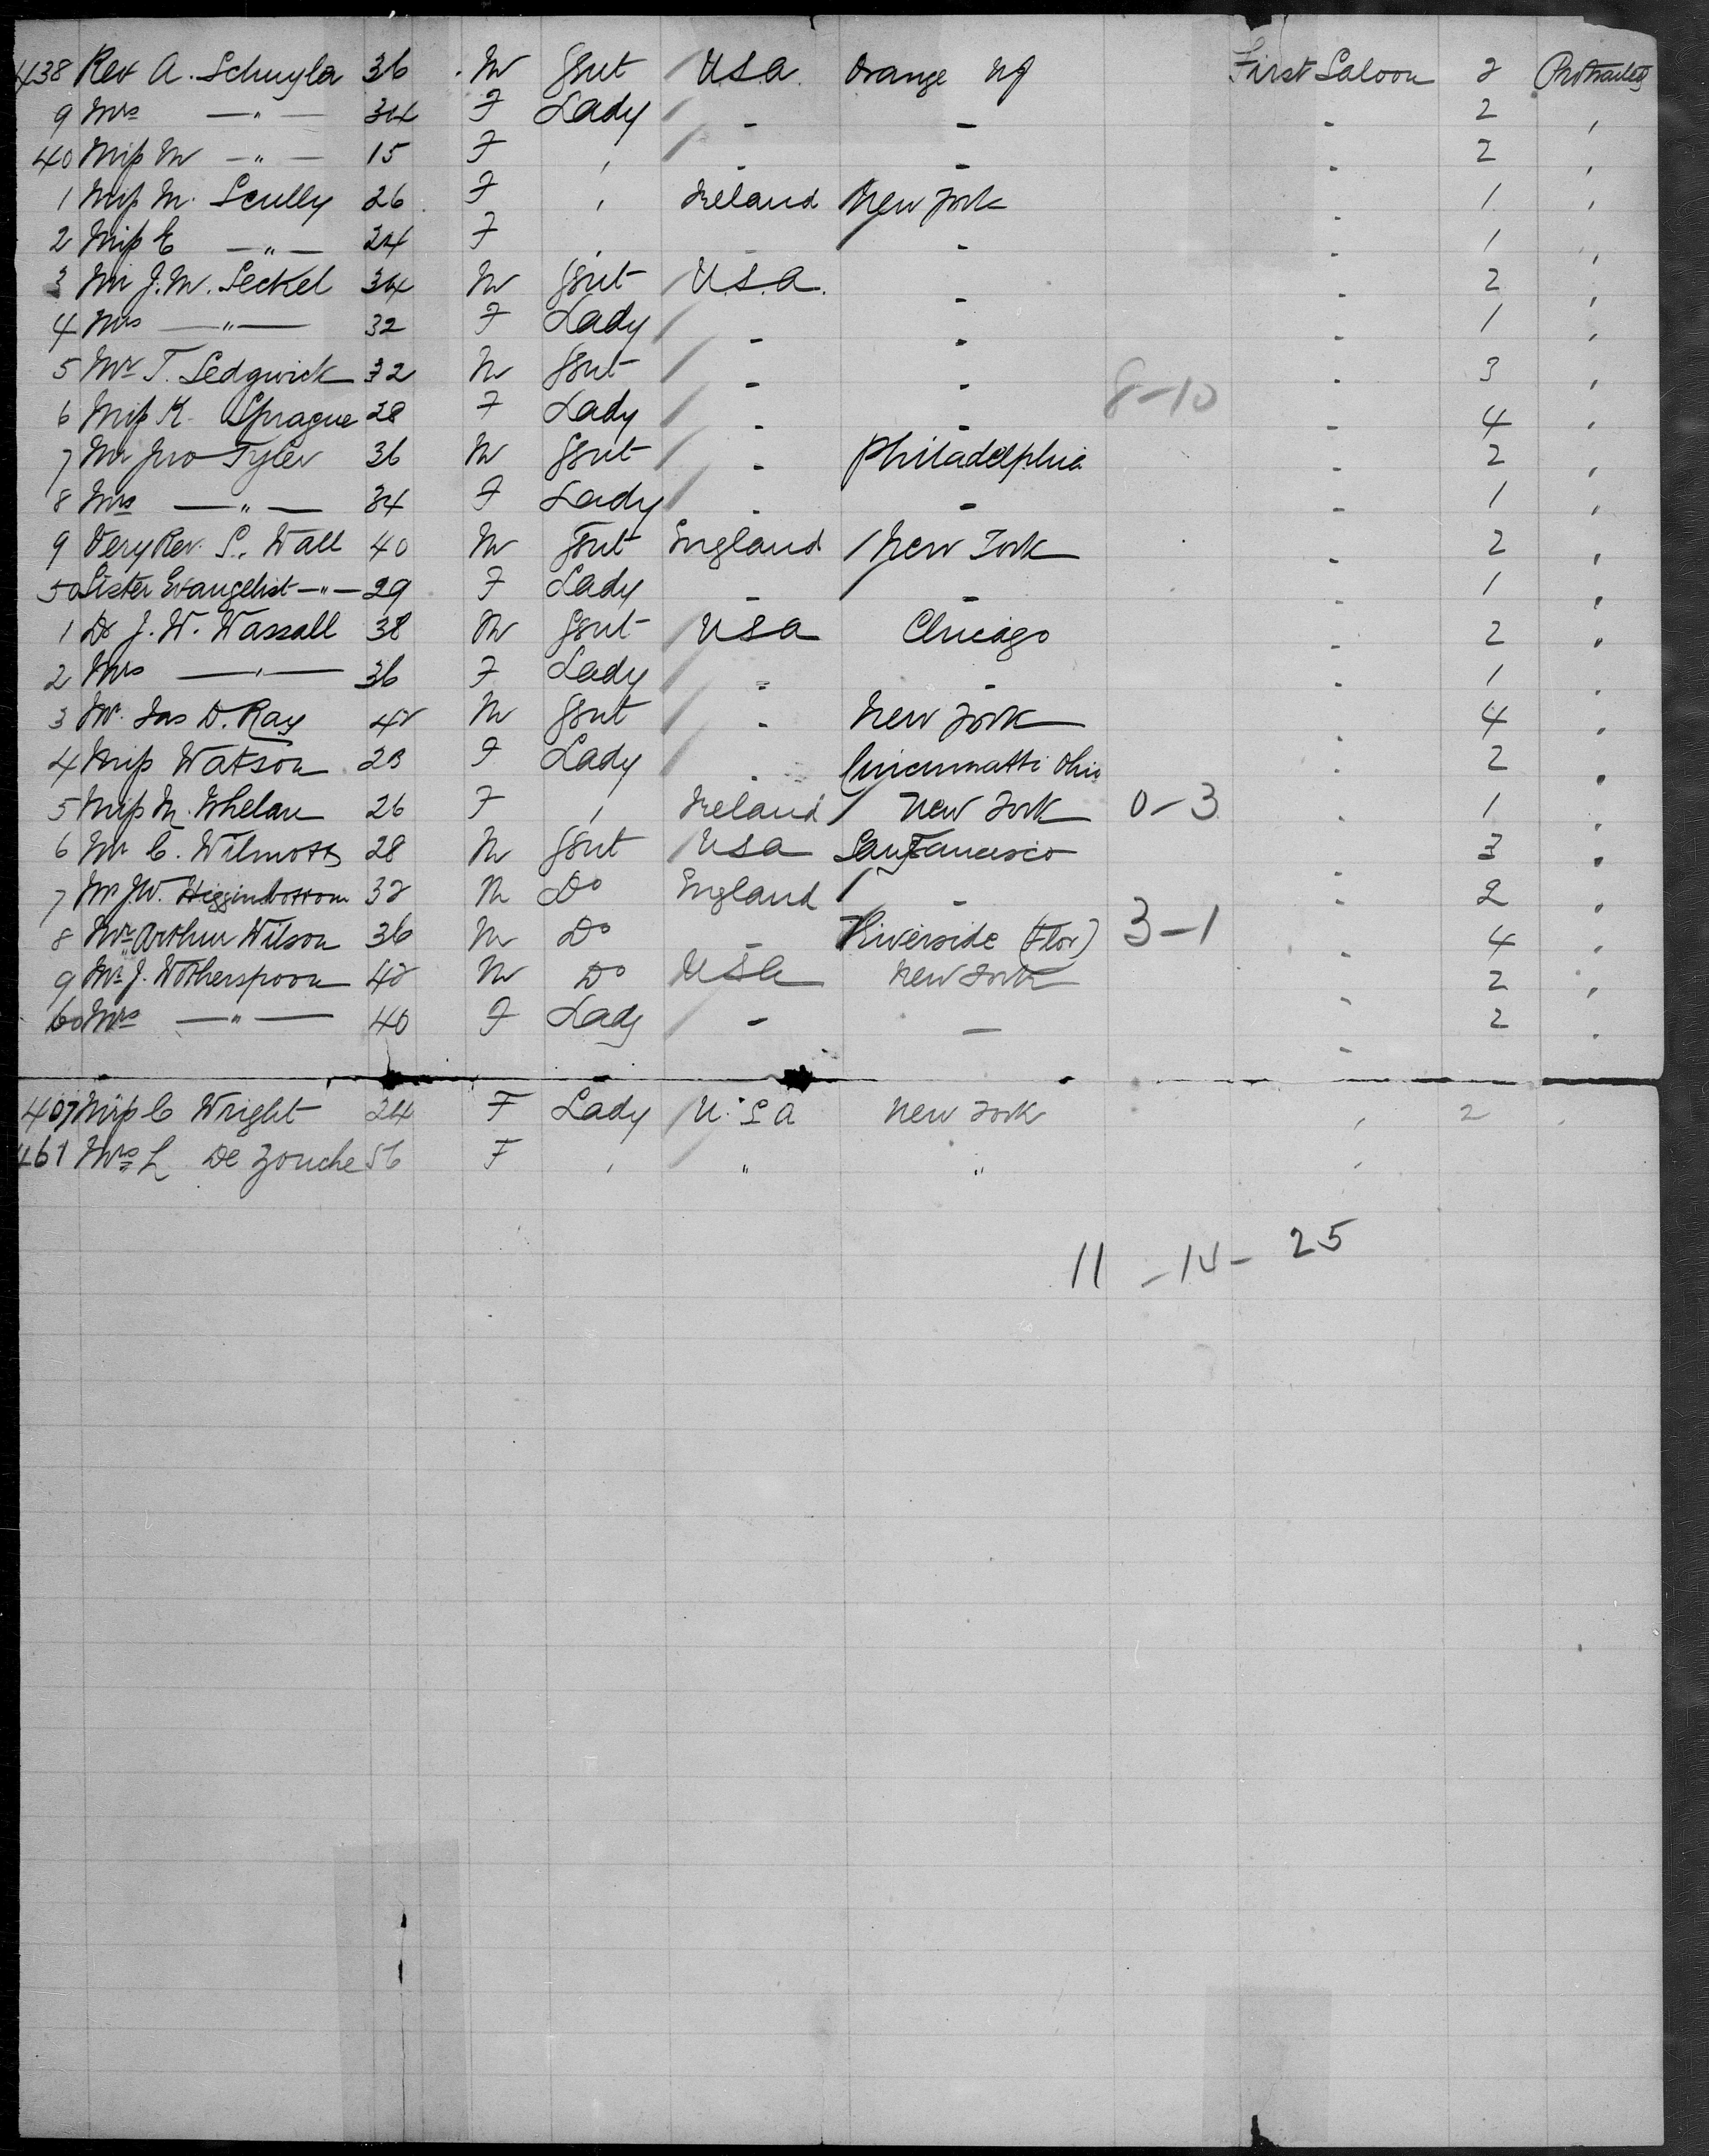 438 Rev A. Schuyler 36 M Gent U.S.A. Orange NJ First Saloon 2 Protracted
9 Mrs —"— 34 F Lady - - - 2 ,
40 Miss M —"— 15 F , - - - 2 ,
1 Miss M. Scully 26 F , Ireland New York - 1 ,
2 Miss E —"— 24 F , - - - 1 ,
3 Mr J. M. Seckel 34 M Gent U.S.A. - - 2 ,
4 Mrs —"— 32 F Lady - - - 1 ,
5 Mr T. Sedgwick 32 M Gent - - 8-10 - 3 ,
6 Miss K. Sprague 28 F Lady - - - 4 ,
7 Mr Jno Tyler 36 M Gent - Philadelphia - 2 ,
8 Mrs —"— 34 F Lady - - - 1 ,
9 Very Rev. S. Wall 40 M Gent England New York - 2 ,
50 Sister Evangelist —"— 29 F Lady - - - 1 ,
1 Dr J. W. Wassall 38 M Gent USA Chicago - 2 ,
2 Mrs —"— 36 F Lady - - - 1 ,
3 Mr. Jas D. Ray 42 M Gent - New York - 4 ,
4 Miss Watson 23 F Lady - Cincinnatti Ohio - 2 ,
5 Miss M. Whelan 26 F , Ireland New York 0-3 - 1 ,
6 Mr C. Wilmott 28 M Gent USA San Francisco - 3 ,
7 Mr J.W. Higginbottom 32 M Do England - - 2 ,
8 Mr Arthur Wilson 36 M Do - Riverside (Flor) 3-1 - 4 ,
9 Mr J. Wotherspoon 42 M Do USA New York - 2 ,
60 Mrs —"— 40 F Lady - - - 2 ,
407 Miss C Wright 24 F Lady U.S.A New York , 2 ,
461 Mrs L De Zouche 56 F , " " ,
11 - 14 - 25